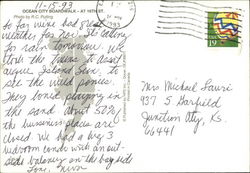 11-15-93
OCEAN CITY BOARDWALK - AT 15TH ST.
Photo by R.C. Pulling
So far we've had great
weather for Nov. Predicting
for rain tomorrow. We
took the trains to Assat-
eague Island Sun. to
see the wild ponies.
They loved playing in
the sand. About 50% of
the business places are
closed. We had a big 3
bedroom condo with an out-
side balcony on the bayside
Love, Mom
1993
19
Mrs Michael Lauri
937 S Garfield
Junction City, KS.
66441